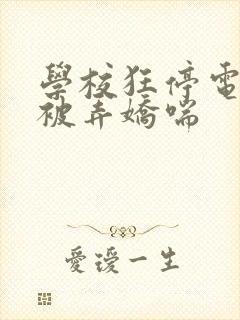 學校狂停電
被弄嬌喘
愛谩一生